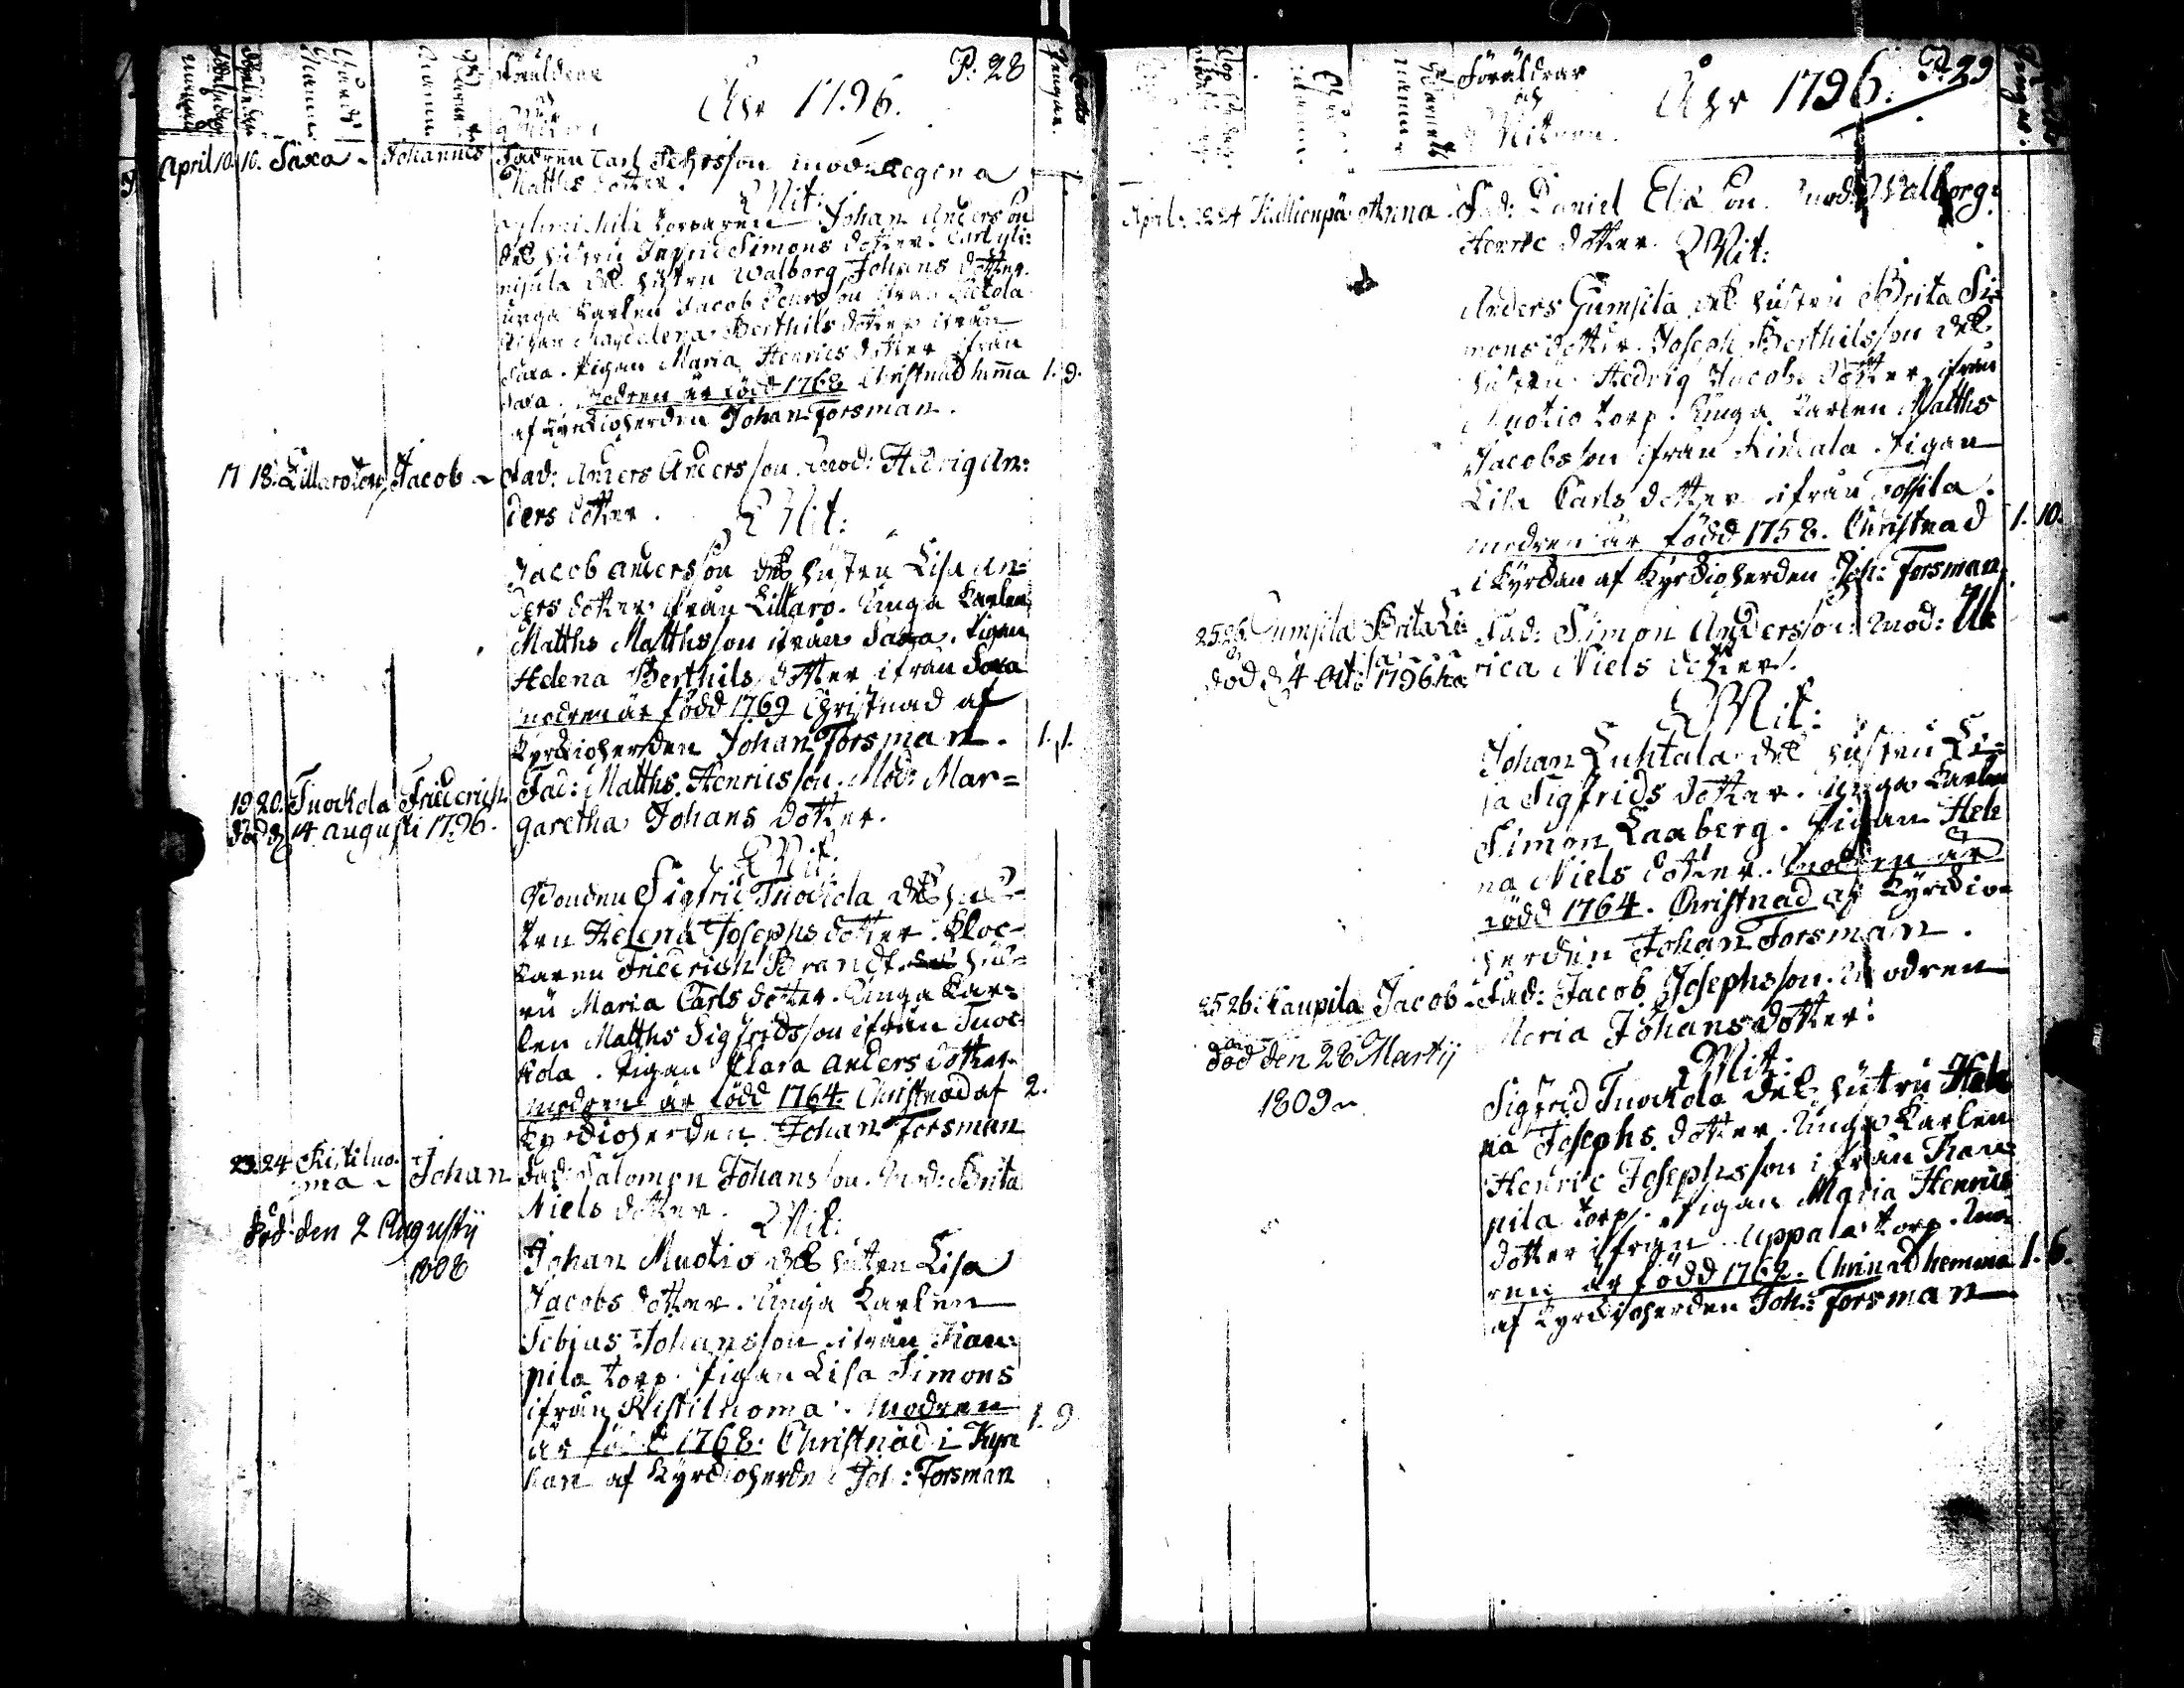 P: 28
Föräldrar
och
Åhr 1796.
April 10. 10. Saxa Johannes Fadren Carl Pehrsson mod: Regena
Matths dotter.
Wit:
torparen Johan Andersson
des hustru Ingrid Simons dotter. Carl
des hustru Walborg Johans dotter.
unga Karlen Jacob ifrån
Pigan Magdalena Berthils dotter ifrån
Saxa. Pigan Maria Henrics dotter ifrån
Saxa. Modren är född 1768 Christnad hemma 1. 9.
af Kyrckioherden Johan Forsman.
17 18. Jacob Fad: Anders Andersson. Mod: Hedrig An:
ders dotter.
Wit:
Jacob Andersson des hustru Lisa An:
ders dotter ifrån Lillaro. Unga Karlen
Matths Matthsson ifrån Saxa. Pigan
Helena Berthils dotter ifrån Saxa
modren är född 1769 Christnad af
Kyrckioherden Johan Forsman. 1. 1.
19 20. Tuockola Friedrich Fad: Matths Henricsson. Mod: Mar=
död d 14 augusti 1796. garetha Johans dotter.
Wit:
Bonden Sigfrid Tuockola des hus=
tru Helena Josephs dotter. Kloc=
karen Friedrich Brandt. hust=
ru Maria Carls dotter. Unga Kar=
len Matths Sigfridsson ifrån Tuoc
kola. Pigan Clara Anders dotter
modren är född 1764. Christnad af 2.
Kyrckioherden Johan Forsman
23 24 Ristiluo- Johan Fad: Salomon Johansson. Mod: Brita
ma Niels dotter.
Wit:
död den 2 Augustij
1808
Johan Muotio des hustru Lisa
Jacobs dotter. Unga Karlen
Tobias Johansson ifrån Kau=
pila torp. Pigan Lisa Simons
ifrån Ristiluoma. Modren
är född 1768. Christnad i Kyrc 1. 9
kan af Kyrckioherden Joh: Forsman
P. 29
Föräldrar
och
Witnen.
Åhr 1796.
April: 24 Anna Fad: Daniel Eliasson mod: Walborg
Henric dotter. Wit:
Anders Gumsila des hustru Brita Si=
mons dotter. Joseph Berthilsson des
hustru Hedrig Jacobs dotter ifrån
Muotio torp. Unga Karlen Matths
Jacobsson ifrån Kindala. Pigan
Lisa Carls dotter ifrån
modren är född 1758. Christnad 1. 10.
i Kyrckan af Kyrckioherden Joh: Forsman.
25 26 Gumsila Brita Li= Fad: Simon Andersson. Mod: Ul
sa rica Niels dotter.
död d 4 Oct: 1796
Wit:
Johan Luhtala des hustru Li=
sa Sigfrids dotter. Unga Karlen
Simon Laxberg. Pigan Hele
na Niels dotter. modren är
född 1764. Christnad af Kyrckio=
herden Johan Forsman.
25 26: Kaupila Jacob Fad: Jacob Josephsson. Modren
Maria Johans dotter.
död den 28 Martij
1809
Wit:
Sigfrid Tuockola des hustru Hele
na Josephs dotter. Unga Karlen
Henric Josephsson ifrån Kau=
pila torp. Pigan Maria Henrics
dotter ifrån Uppala torp. Mod=
ren är född 1762. Christnad hemma 1. 6.
af Kyrckioherden Joh: Forsman